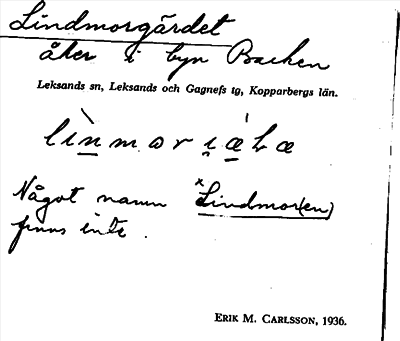 Lindmorgärdet
åker i byn Backen
Leksands sn, Leksands och Gagnefs tg, Kopparbergs län.
Något namn ˣLindmor(en)
finns inte.
ERIK M. CARLSSON, 1936.